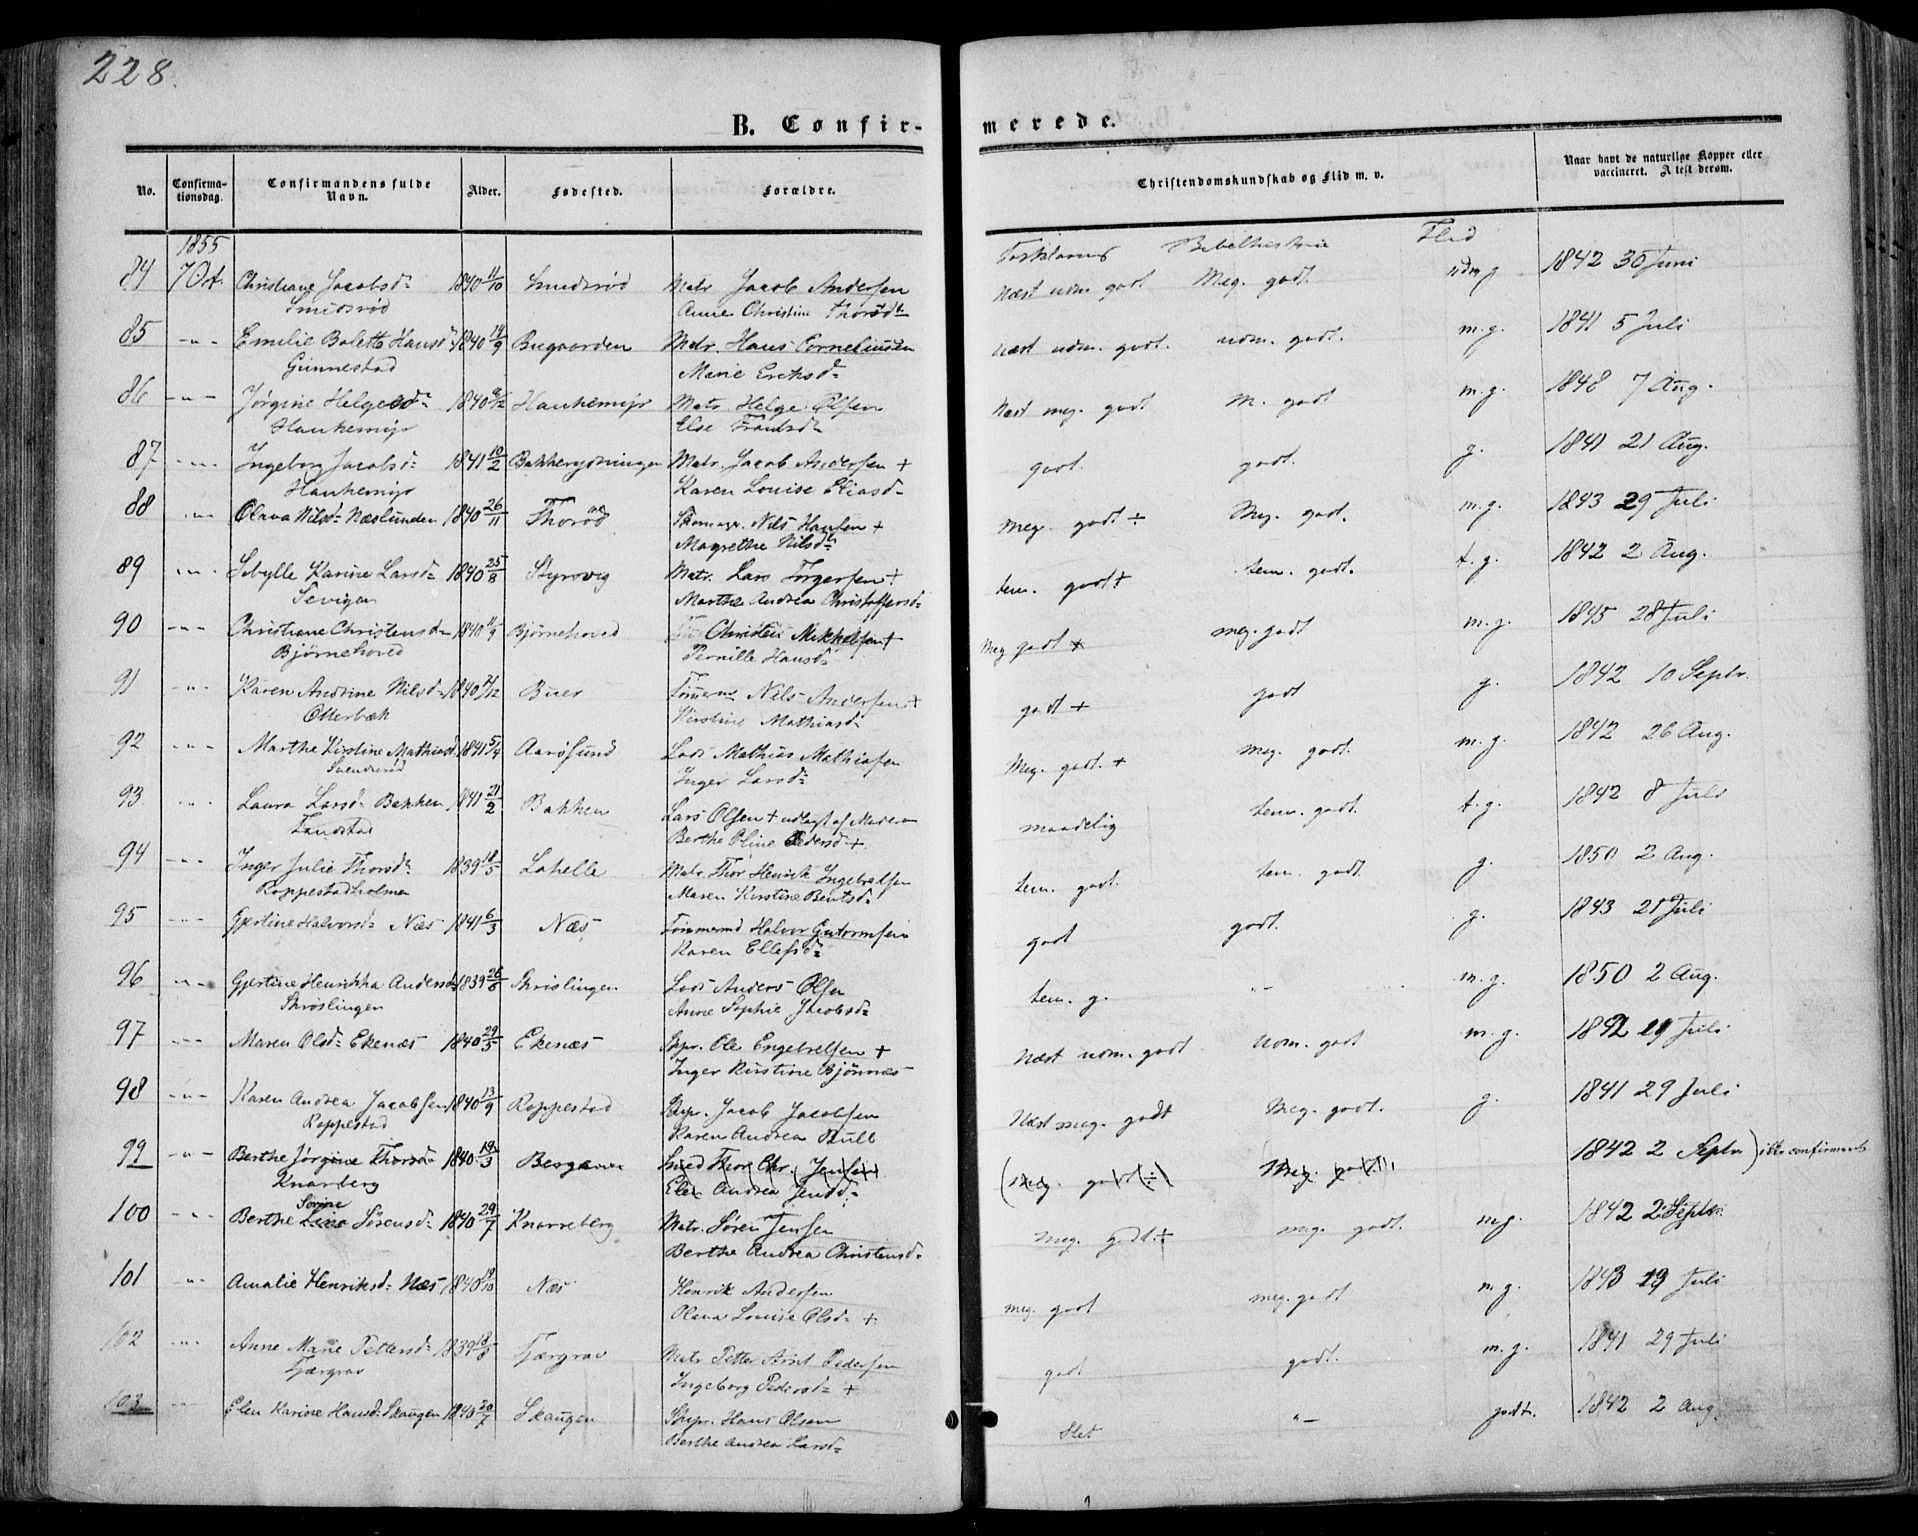 228.
B. Confir-
merede.
No. Confirma-tionsdag. Confirmandens fulde Navn. Alder. Fødested. Forældre. Christendomskundskab og Flid m. v. Naar havt de naturlige Kopper eller vaccineret. Attest derom.
1855 Forklaring Bibelhistorie Flid
84 7 Oct. Christiane Jacobsd: 1840 11/10 Smedsrød Matr Jacob Andersen Næst udm. godt Meg. godt. udm g 1842 30 Juni
Smedsrød Anne Christine Thorsd:
85 -"- Emilie Bolette Hansd 1840 19/9 Bugaarden Matr. Hans Corneliussen Næst udm. godt. udm. godt. m. g. 1841 5 Juli
Gunnestad Marie Eriksd:
86 -"- Jørgine Helgesd: 1840 9/12 Haukemyr Matr Helge Olsen Næst meg. godt M. godt m. g. 1848 7 Aug.
Haukemyr Else Frantsd:
87 -"- Ingeborg Jacobsd: 1841 10/2 Matr. Jacob Andersen + godt. godt. g. 1841 21 Aug.
Haukemyr Karen Louise Eliasd:
88 -"- Olava Nilsd: Næslunden 1840 26/11 Thorød Skomagr. Nils Hansen + Meg. godt ÷ Meg. godt. m. g. 1843 29 Juli
Magrethe Nilsd:
89 -"- Sibylle Karine Larsd: 1840 25/8 Styrsvig Matr. Lars Torgersen + tem. godt + tem. godt. t. g. 1842 2 Aug.
Sevigen Marthe Andrea Christoffersd:
90 -"- Christiane Christensd: 1840 11/9 Bjørnehoved Christen Mikkelsen + Meg godt + meg. godt m. g. 1845 28 Juli
Bjørnehoved Pernille Hansd:
91 -"- Karen Andrine Nilsd: 1840 Buer Tømmermd Nils Andersen + godt + godt g. 1842 10 Septr.
Otterbæk Kirstine Mathiasd:
92 -"- Marthe Kirstine Mathiasd 1841 5/4 Aarøsund Lods Mathias Mathiasen Meg. godt. + meg. godt. m. g. 1842 26 Aug.
Svendsrød Inger Larsd:
93 -"- Laura Larsd: Bakken 1841 21/2 Bakken Lars Olsen + udlagt af Moderen maadelig tem. godt. t. g. 1842 8 Juli
Berthe Oline Pedersd +
94 -"- Inger Julie Thorsd: 1839 18/5 Lahelle Matr. Thor Henrik Ingebretsen tem. godt. tem. godt. g. 1850 2 Aug.
Roppestadholmen Maren Kirstine Bentsd:
95 -"- Gjertine Halvorsd: Næs 1841 6/3 Næs Tømmermd Halvor Gutormsen godt godt. g. 1843 21 Juli
Karen Ellefsd:
96 -"- Gjertine Henrikka Andersd: 1839 26/6 Skrøslingen Lods Anders Olsen tem. g. -"- m. g. 1850 2 Aug.
Skrøslingen Anne Sophie Jacobsd:
97 -"- Maren Olsd: Ekenæs 1840 29/5 Ekenæs Skpr. Ole Engebretsen + Næst udm. godt Udm. godt m. g. 1842 29 Juli
Inger Kirstine Bjønnes
98 -"- Karen Andrea Jacobsen 1840 13/9 Roppestad Skpr. Jacob Jacobsen Næst meg. godt Meg. godt. g. 1841 29 Juli
Roppestad Karen Andrea Bull
99 -"- Berthe Jørgine Thorsd: 1840 19/3 Smed Thor Chr. Jensen (meg. godt ÷) Meg. godt. 1842 2 Septr ) ikke confirmeret
Knarberg Elen Andrea Jensd:
Sorine
100 -"- Berthe Line Sørensd: 1840 29/7 Knarreberg Matr. Søren Jensen meg. godt. + meg. godt. mg. 1842 2 Septr.
Berthe Andrea Christensd:
101 -"- Amalie Henriksd: Næs 1840 19/10 Næs Henrik Andersen meg. godt meg. godt m. g. 1843 Juli
Olava Louise Olsd: +
102 -"- Anne Marie Pettersd: 1839 18/8 Fjærgrav Matr Petter Arnt Pedersen godt godt. m. g. 1841 29 Juli
Fjærgrav Ingeborg Pedersd: +
103 -"- Elen Karine Hansd: Skaugen 1840 20/7 Skaugen Skpr. Hans Olsen Slet "- godt. 1842 2 Aug.
Berthe Andrea Larsd: